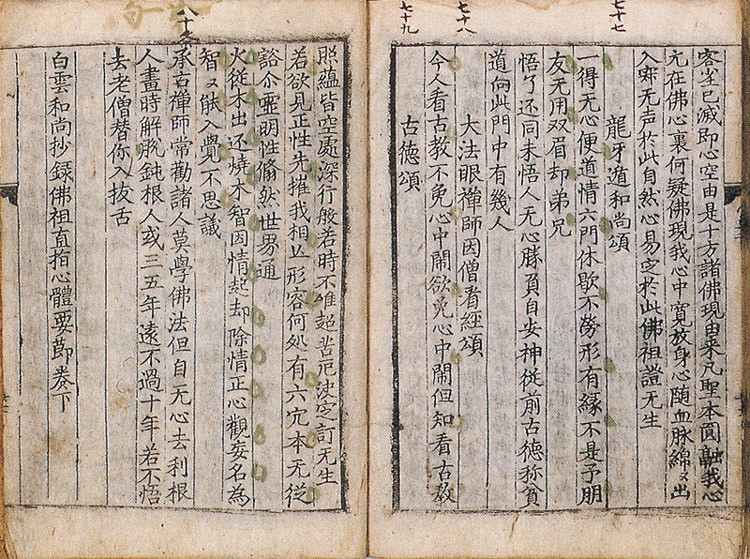 七十七
七十八
七十九
八十
客尘已滅即心空由是十方諸佛現由来凡聖本圓融我心
元在佛心裏何疑佛現我心中寬放身心隨血脉綿〻出
入无声於此自然心易定於此佛祖證无生
龍牙遁和尚頌
一得无心便道情六門休歇不勞形有緣不是予朋
友无用双眉却弟兄
悟了还同未悟人无心勝負自安神從前古德称貧
道向此門中有幾人
大法眼禪師因僧看經頌
今人看古教不免心中鬧欲免心中鬧但知看古教
古德頌
照蘊皆空處深行般若時不唯超苦厄決定訂无生
若欲見正性先摧我相丘形容何処有六穴本无從
谿尒靈明性翛然世界通
火從木出还燒木智因情起却除情正心觀妄名為
智〻能入覺不思議
承古禪師常勸諸人莫學佛法但自无心去利根
人畫時解脫鈍根人或三五年遠不過十年若不悟
去老僧替你入拔舌
白雲和尚抄録佛祖直指心體要節卷下